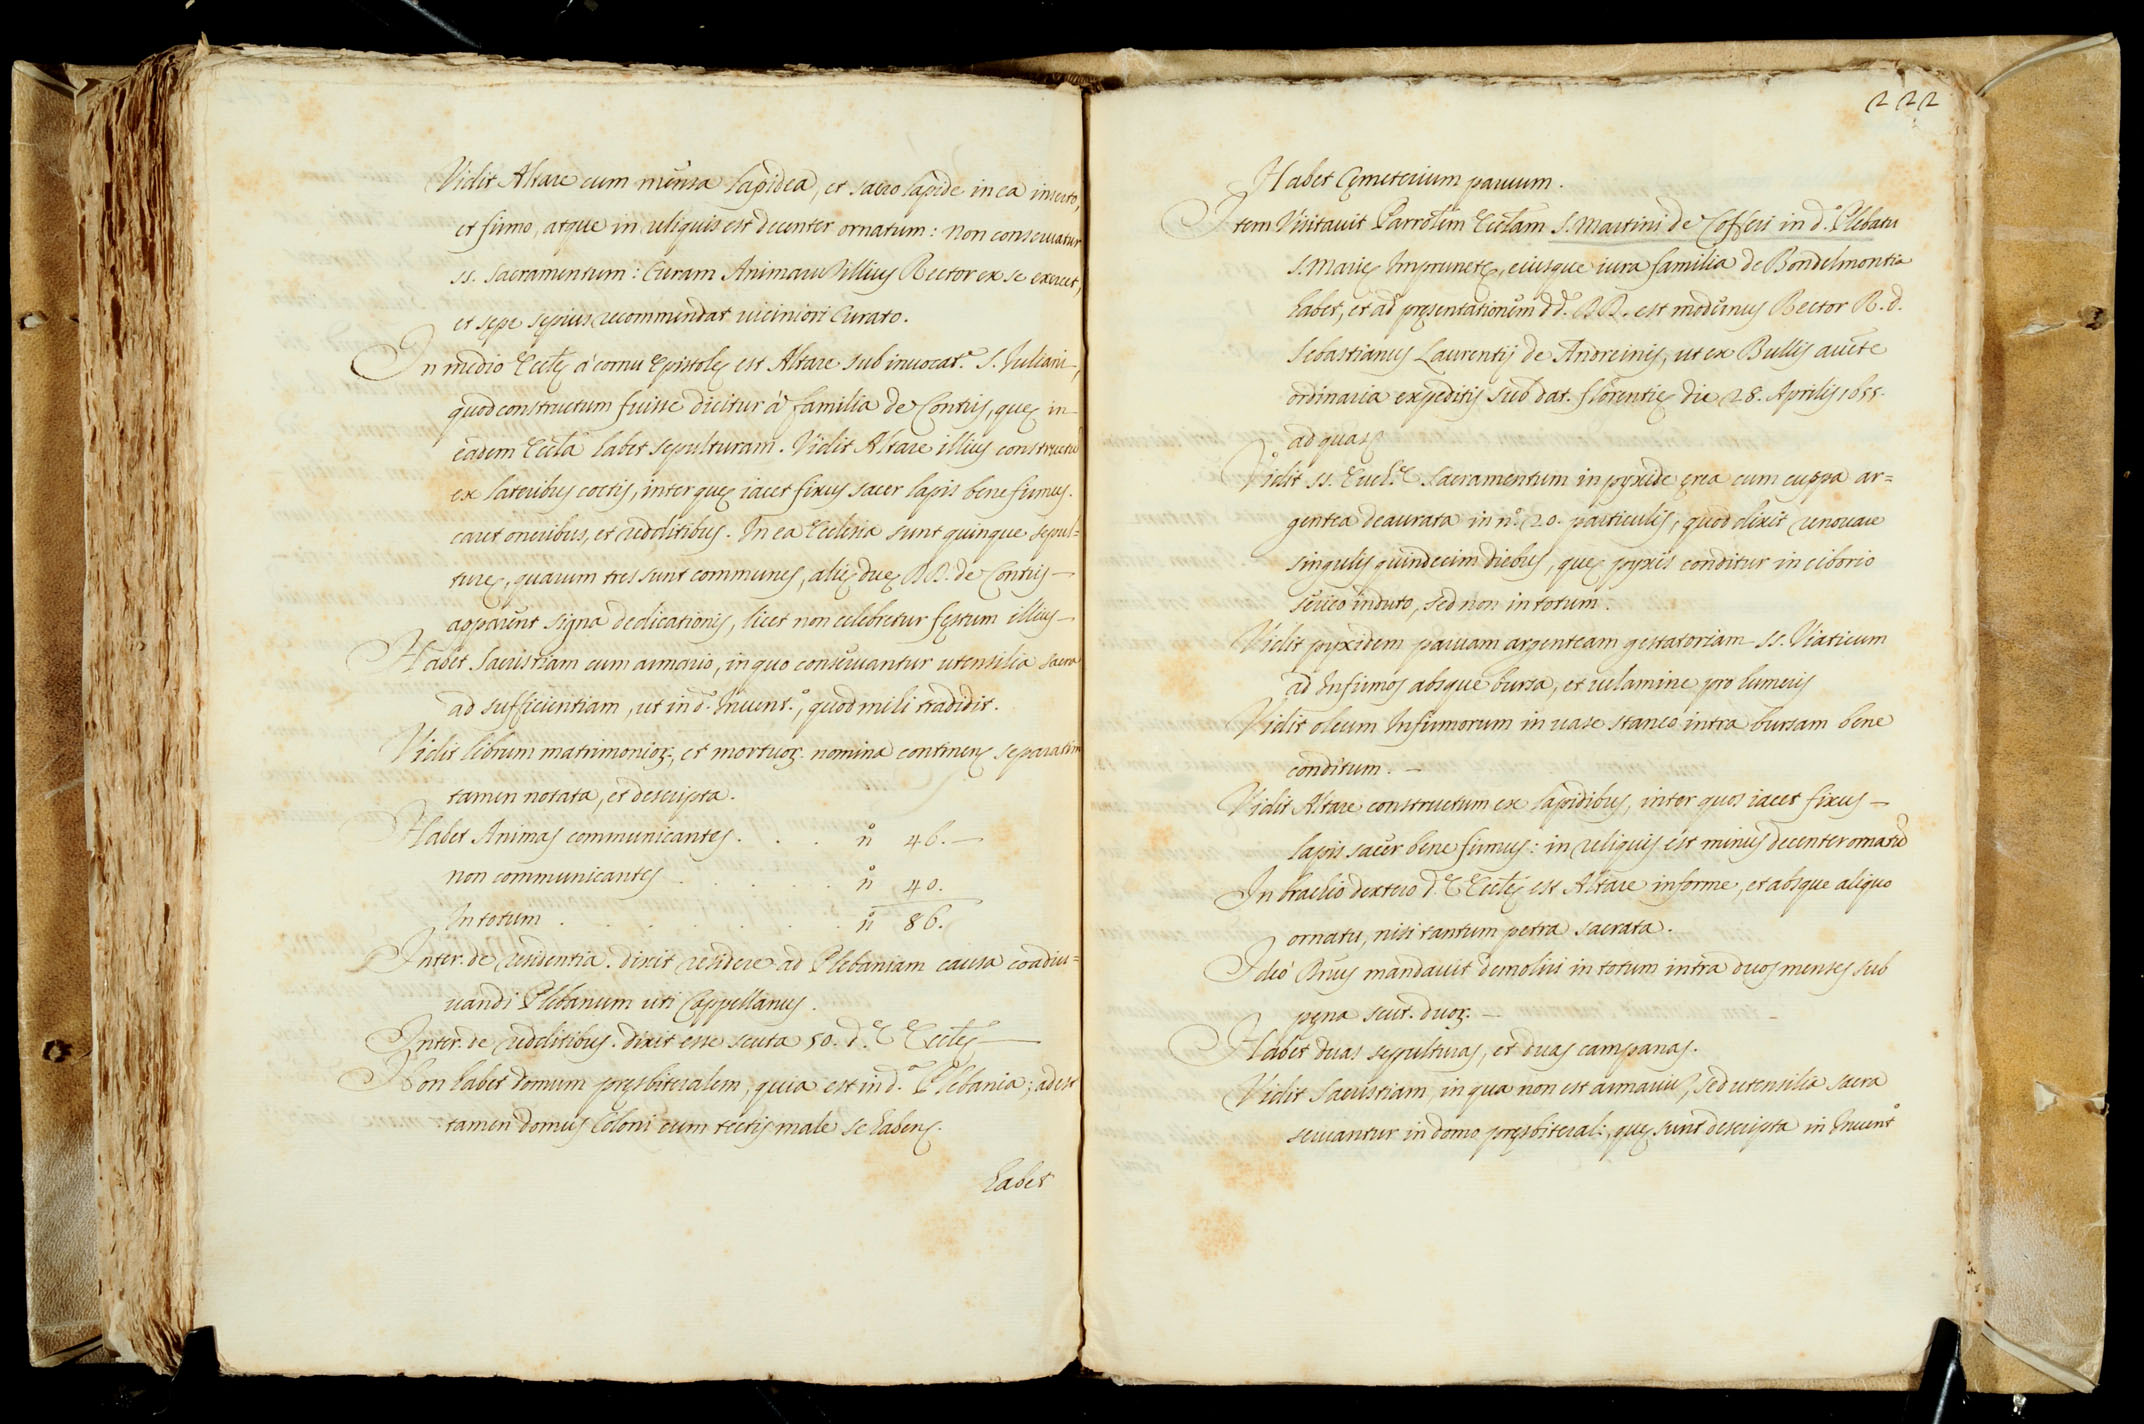 Vidit Altare cum mensa lapidea, et sacro lapide in ea inserto,
et firmo, atque in reliquis est decenter ornatum: non conseruatur
ss. sacramentum: Curam Animarũ illius Rector ex se exercet,
et sepe sępius recommendat uiciniori Curato.
In medio Eccłę à cornu Epistolę est Altare sub inuocat.e S. Juliani,
quod constructum fuisse dicitur à familia de Contijs, quę in
eadem Eccła habet sepulturam. Vidit Altare illius constructũ
ex lateribus coctis, inter quę iacet fixus sacer lapis bene firmus.
caret oneribus, et redditibus. In ea Ecclesia sunt quinque sepul=
turę, quarum tres sunt communes, alię duę DD. de Contijs
apparent signa dedicationis, licet non celebretur festum illius
Habet Sacristiam cum armario, in quo conseruantur utensilia sacra
ad sufficientiam, ut in d.o Inuent.o, quod mihi tradidit.
Vidit librum matrimonioꝝ, et mortuoꝝ nomina continens separatim
tamen notata, et descripta.
Habet Animas communicantes . . . no 46.
non communicantes . . . . . . no 40.
In totum . . . . . . . . no 86.
Inter. de residentia. dixit residere ad Plebaniam causa coadiu=
uandi Plebanum uti Cappellanus.
Inter. de redditibus. dixit esse scuta 50. d.ę Eccłę
Non habet domum pręsbiteralem, quia est in d.a Plebania; adest
tamen domus Coloni cum tectis male se habens.
habet
222
Habet Cęmeterium paruum.
Item Visitauit Parrołem Eccłam S. Martini de Cofferi in d.o Plebatu
S. Marię Imprunetę, eiusque iura familia de Bondelmontis
habet, et ad pręsentationem dd. DD. est modernus Rector R. d.
Sebastianus Laurentij de Andreinis, ut ex Bullis aucte
ordinaria expeditis sub dat. Florentię die 28. Aprilis 1655.
ad quas
Vidit ss. Euch.ę Sacramentum in pyxide ęrea cum cuppa ar=
gentea deaurata in no. 20. particulis, quod dixit renouare
singulis quindecim diebus, quę pyxis conditur in ciborio
serico induto, sed non in totum.
Vidit pyxidem paruam argenteam gestatoriam ss. Viaticum
ad Infirmos absque bursa, et uelamine pro humeris
Vidit oleum Infirmorum in uase staneo intra bursam bene
conditum.
Vidit Altare constructum ex lapidibus, inter quos iacet fixus
lapis sacer bene firmus: in reliquis est minus decenter ornatũ
In brachio dextero d.ę Eccłę est Altare informe, et absque aliquo
ornatu, nisi tantum petra sacrata.
Ideò Dñus mandauit demoliri in totum intra duos menses sub
pęna scut. duoꝝ.
Habet duas sepulturas, et duas campanas.
Vidit Sacristiam, in qua non est armariũ, sed utensilia sacra
seruantur in domo pręsbiterali, quę sunt descripta in Inuent.o